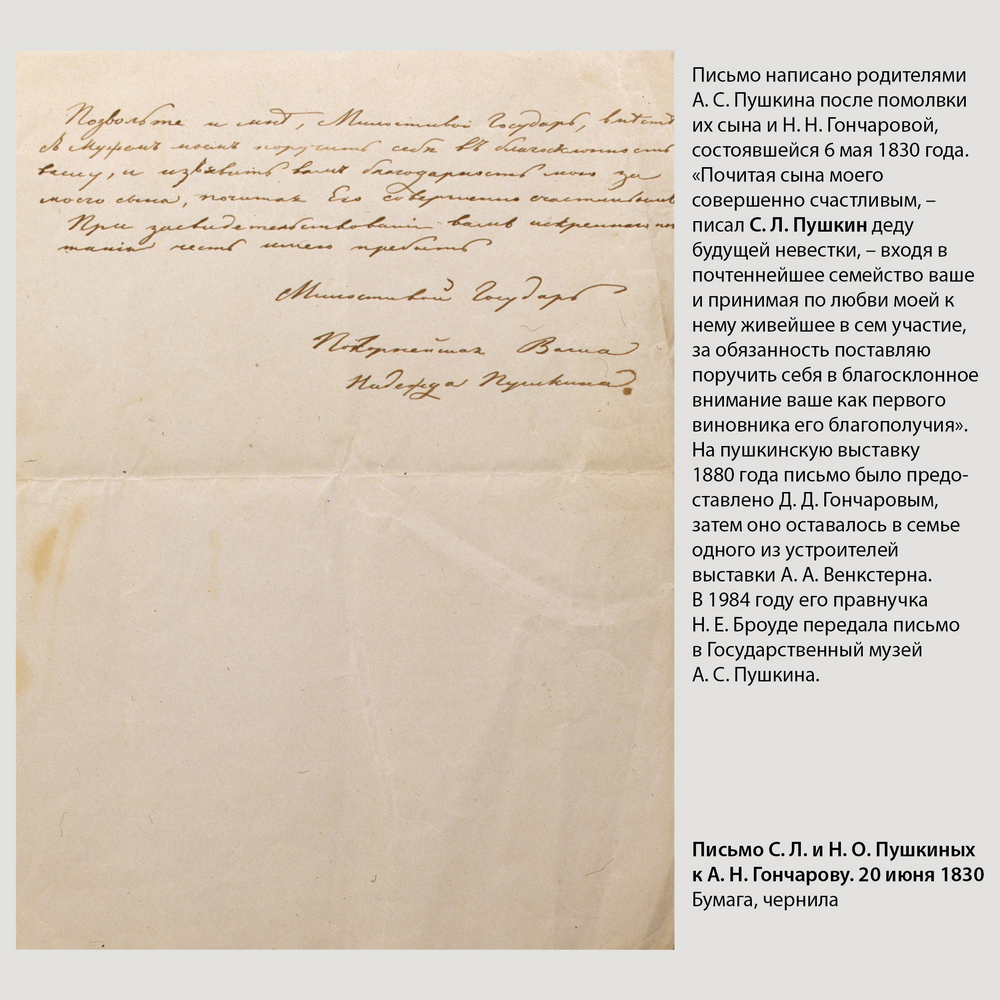 Позвольте и мнѣ, Милостивой Государь, вмѣстѣ
съ Мужемъ моимъ поручить себя въ благосклонность
вашу, и изъявить вамъ благодарность мою за
моего сына, почитая Его совершенно счастливымъ
При засвидетельствовании вамъ искреннаго поч
тания честь имею пребыть
Милостивой Государь
Покорнейшая Ваша
Надежда Пушкина.
Письмо написано родителями
А. С. Пушкина после помолвки
их сына и Н. Н. Гончаровой,
состоявшейся 6 мая 1830 года.
«Почитая сына моего
совершенно счастливым, –
писал С. Л. Пушкин деду
будущей невестки, – входя в
почтеннейшее семейство ваше
и принимая по любви моей к
нему живейшее в сем участие,
за обязанность поставляю
поручить себя в благосклонное
внимание ваше как первого
виновника его благополучия».
На пушкинскую выставку
1880 года письмо было предо-
ставлено Д. Д. Гончаровым,
затем оно оставалось в семье
одного из устроителей
выставки А. А. Венкстерна.
В 1984 году его правнучка
Н. Е. Броуде передала письмо
в Государственный музей
А. С. Пушкина.
Письмо С. Л. и Н. О. Пушкиных
к А. Н. Гончарову. 20 июня 1830
Бумага, чернила